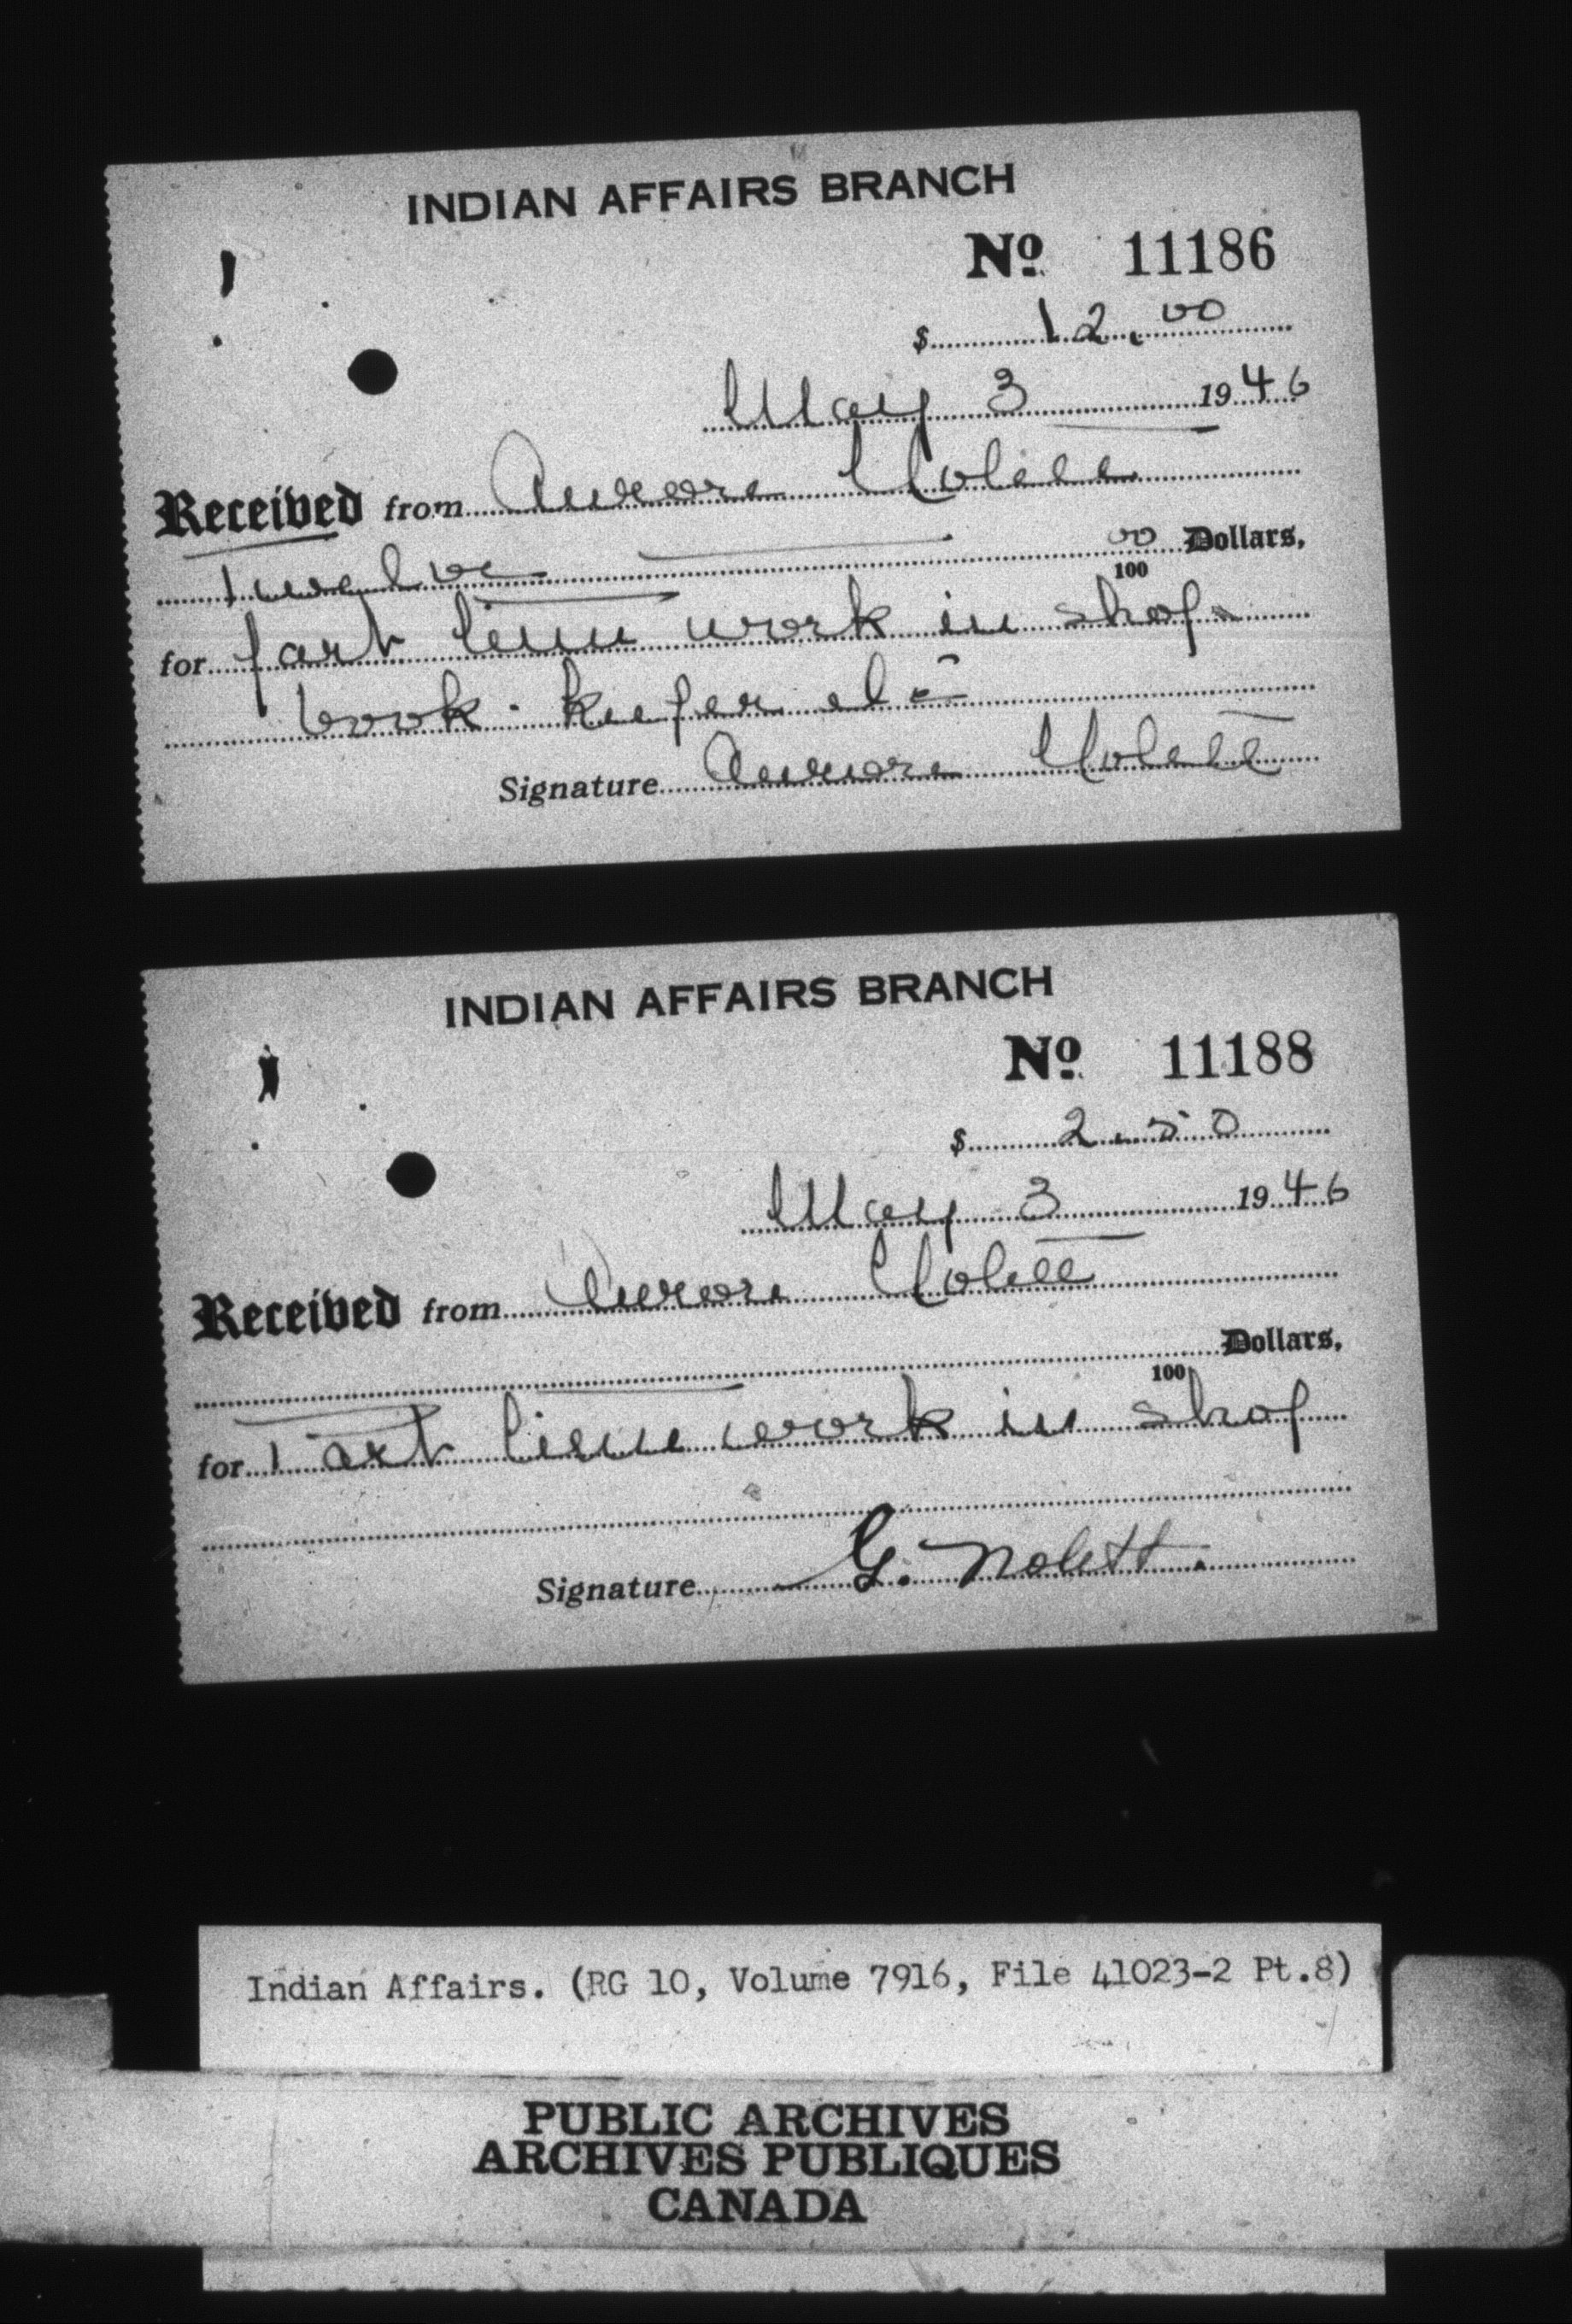 INDIAN AFFAIRS BRANCH
Nº 11186
$ 12.00
May 3 1946
Received from Aurore
Twelve 00/100 Dollars,
for part time work in shop
book-keeper
Signature Aurore
INDIAN AFFAIRS BRANCH
Nº 11188
$ 2.50
May 3 1946
Received from Aurore
100 Dollars,
for Part time work in shop
Signature G. Nolett.
Indian Affairs. (RG 10, Volume 7916, File 41023-2 Pt.8)
PUBLIC ARCHIVES
ARCHIVES PUBLIQUES
CANADA